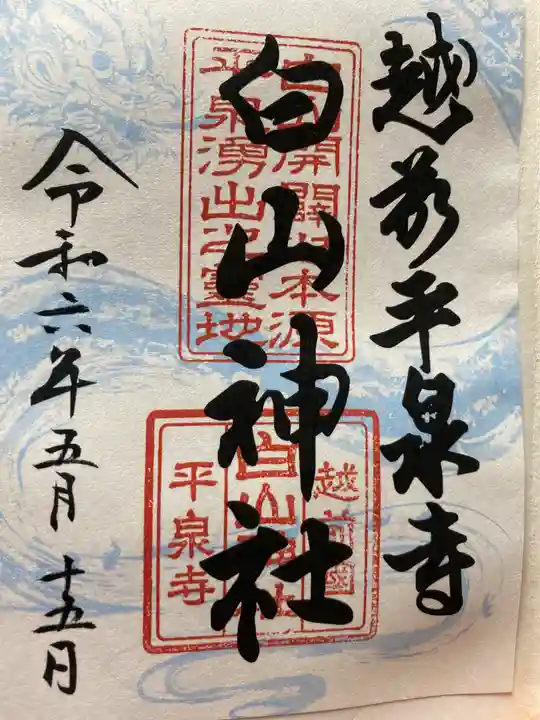 越前平泉寺
白山神社
令和六年五月十五日
白山開闢之本源
平泉湧出之霊地
越前
白山神社
平泉寺